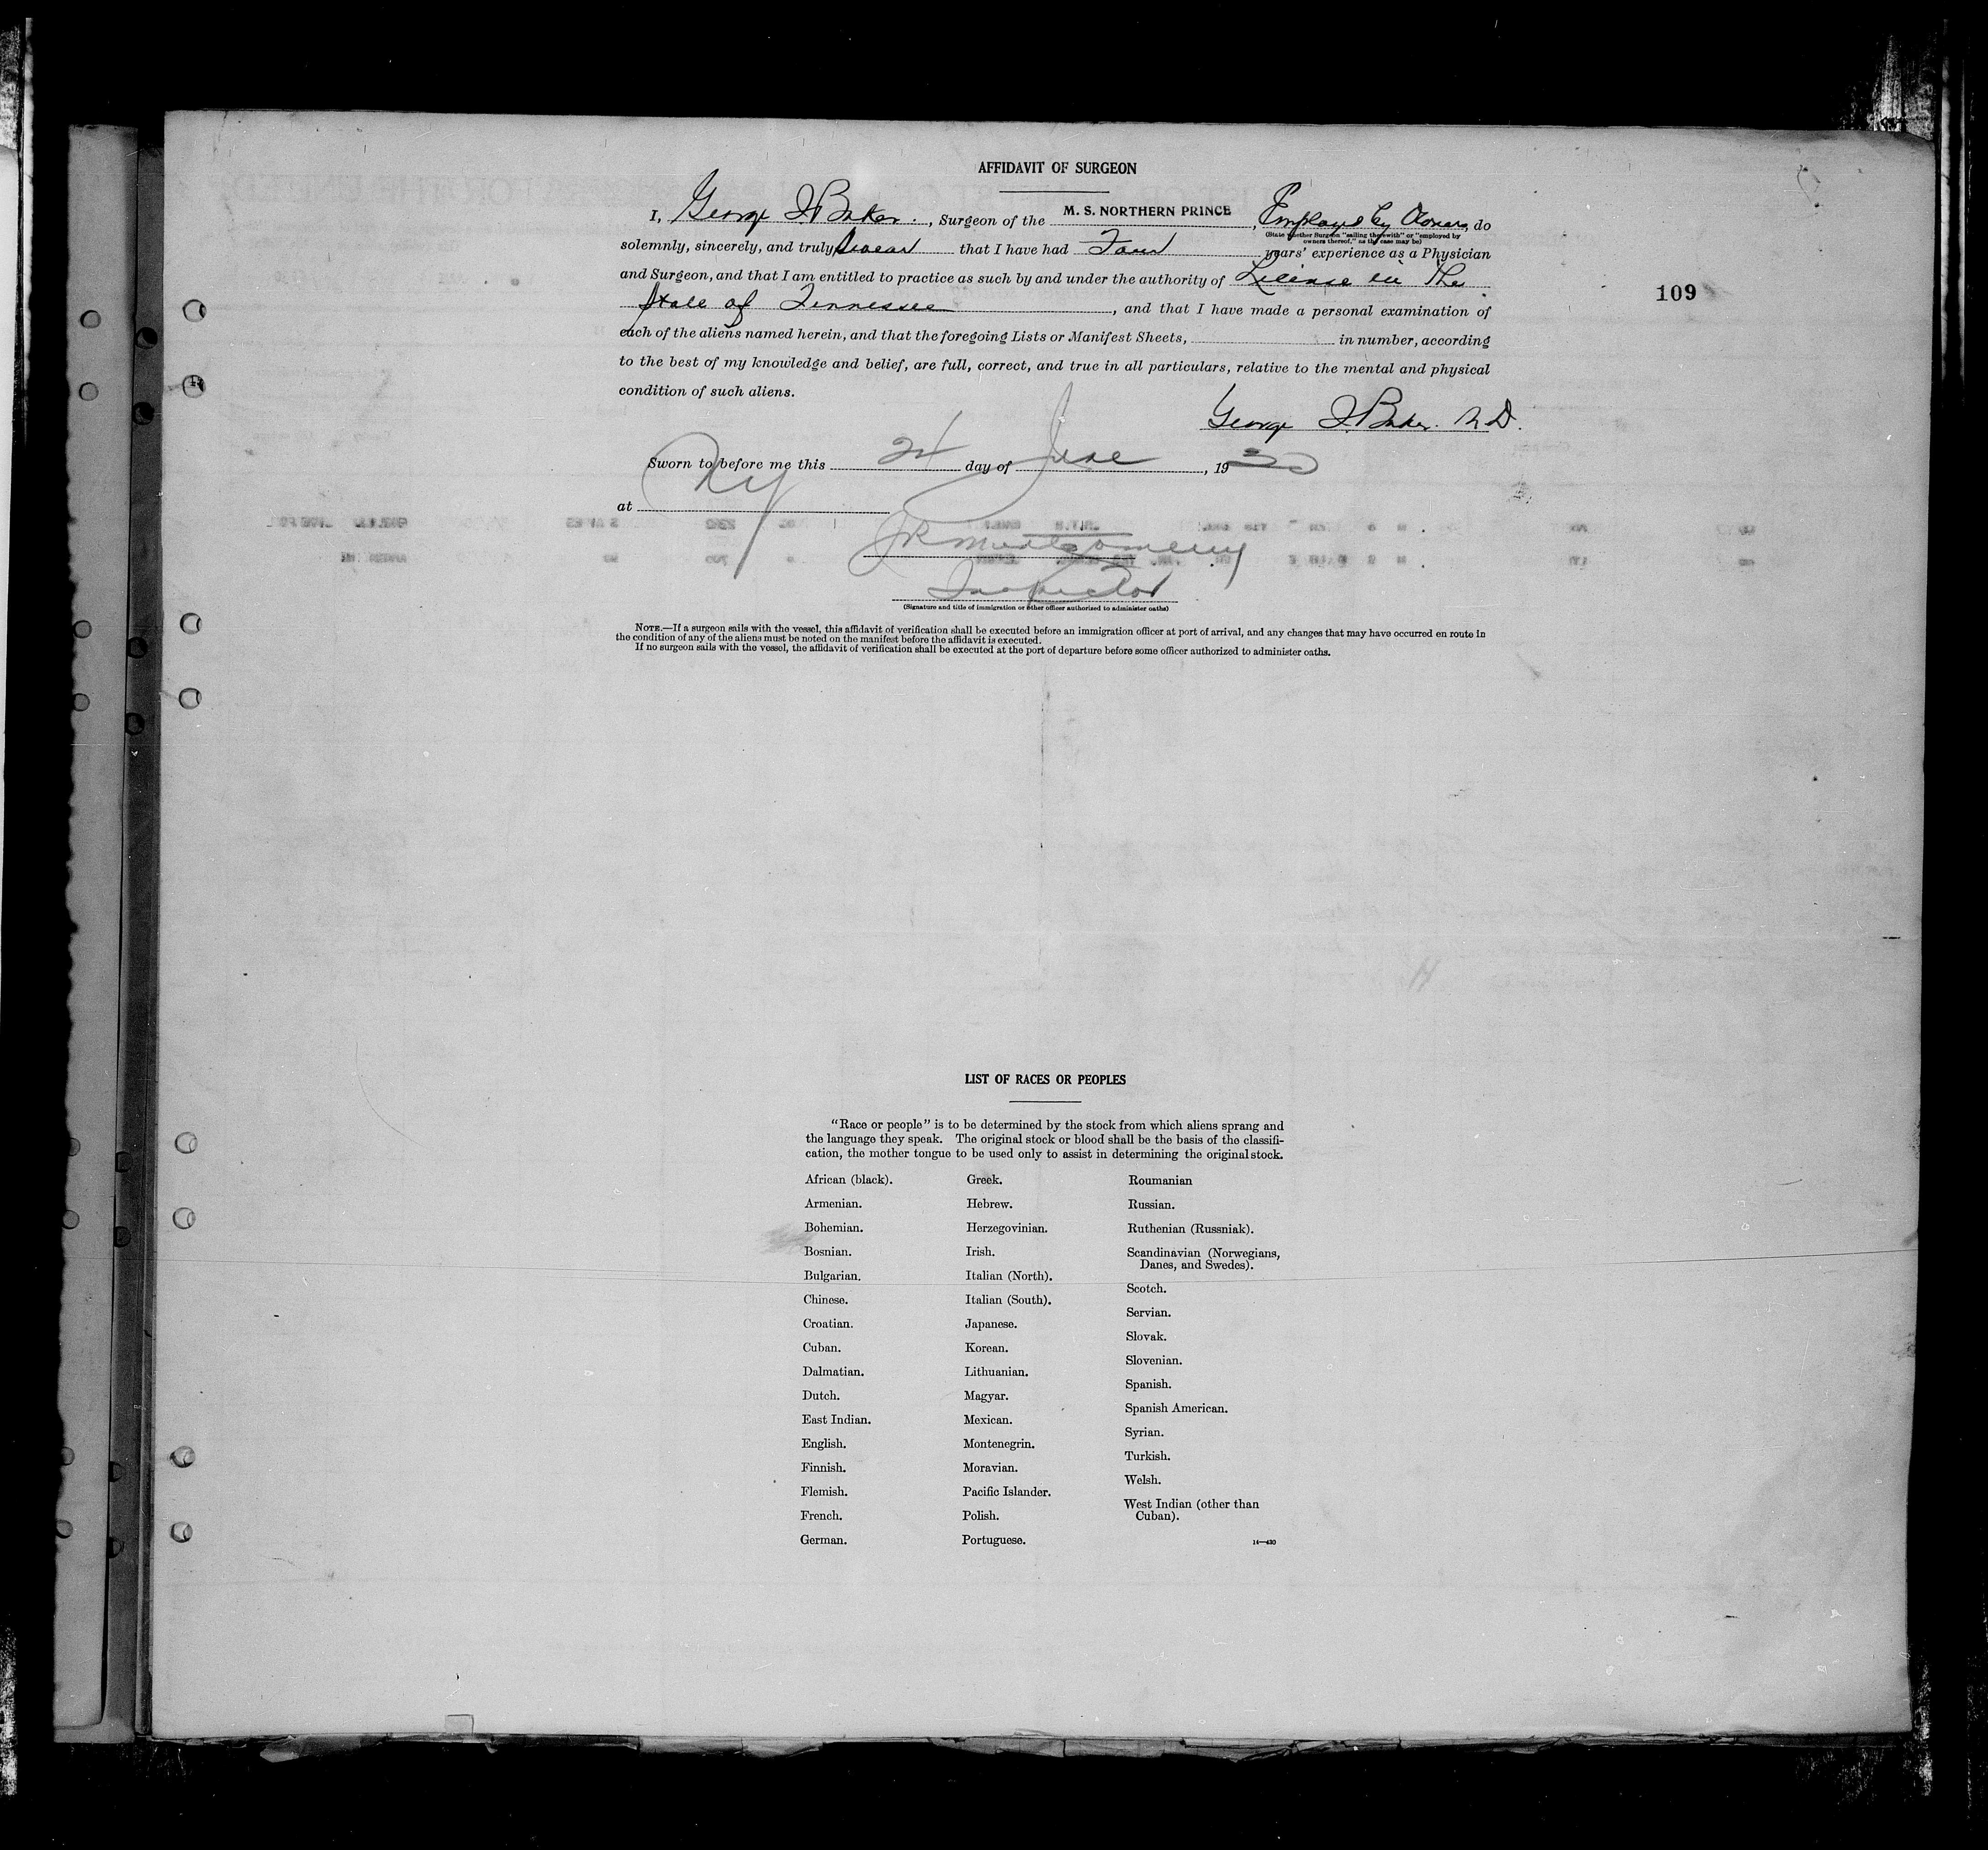 AFFIDAVIT OF SURGEON
I, George I. Baker., Surgeon of the M. S. NORTHERN PRINCE, Employd by Owners, do
(State whether Surgeon "sailing therewith" or "employed by owners thereof," as the case may be)
solemnly, sincerely, and truly swear that I have had Four years' experience as a Physician
and Surgeon, and that I am entitled to practice as such by and under the authority of License in the
State of Tennessee, and that I have made a personal examination of
109
each of the aliens named herein, and that the foregoing Lists or Manifest Sheets, in number, according
to the best of my knowledge and belief, are full, correct, and true in all particulars, relative to the mental and physical
condition of such aliens.
George I. Baker. M.D.
Sworn to before me this 24 day of June, 1930
at NY
JR Montgomery
Inspector
(Signature and title of immigration or other officer authorized to administer oaths)
NOTE.—If a surgeon sails with the vessel, this affidavit of verification shall be executed before an immigration officer at port of arrival, and any changes that may have occurred en route in
the condition of any of the aliens must be noted on the manifest before the affidavit is executed.
If no surgeon sails with the vessel, the affidavit of verification shall be executed at the port of departure before some officer authorized to administer oaths.
LIST OF RACES OR PEOPLES
"Race or people" is to be determined by the stock from which aliens sprang and
the language they speak. The original stock or blood shall be the basis of the classifi-
cation, the mother tongue to be used only to assist in determining the original stock.
African (black).
Armenian.
Bohemian.
Bosnian.
Bulgarian.
Chinese.
Croatian.
Cuban.
Dalmatian.
Dutch.
East Indian.
English.
Finnish.
Flemish.
French.
German.
Greek.
Hebrew.
Herzegovinian.
Irish.
Italian (North).
Italian (South).
Japanese.
Korean.
Lithuanian.
Magyar.
Mexican.
Montenegrin.
Moravian.
Pacific Islander.
Polish.
Portuguese.
Roumanian
Russian.
Ruthenian (Russniak).
Scandinavian (Norwegians,
Danes, and Swedes).
Scotch.
Servian.
Slovak.
Slovenian.
Spanish.
Spanish American.
Syrian.
Turkish.
Welsh.
West Indian (other than
Cuban).
14—430